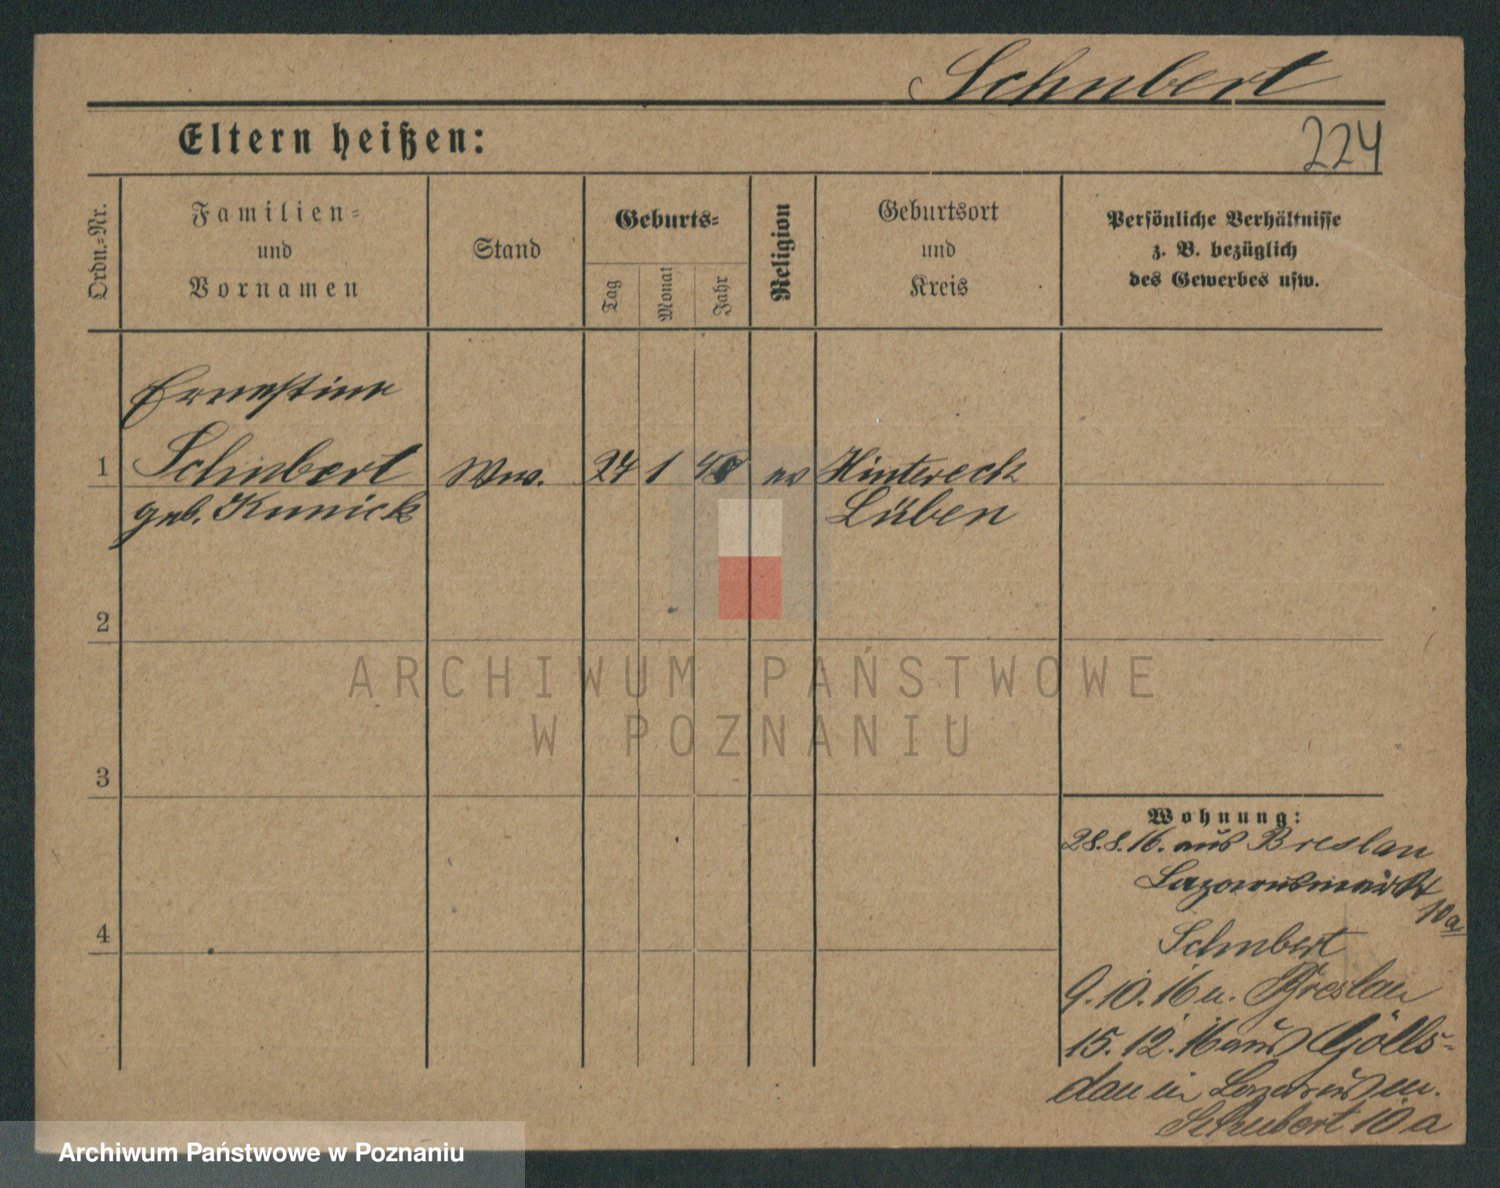 Schubert
Eltern heißen:
224
Ordn.=Nr.
Familien=
und
Vornamen
Stand
Geburts=
Tag
Monat
Jahr
Religion
Geburtsort
und
Kreis
Persönliche Verhältnisse
z. B. bezüglich
des Gewerbes usw.
Ernestine
1 Schubert Ww. 24 1 ev Hintereck
geb. Kunick Lüben
2
ARCHIWUM PAŃSTWOWE
W POZNANIU
3
Wohnung:
28.8.16. aus Breslau
Lazarusmarkt
10a
4
Schubert
9.10.16 n. Breslau
15.12.16 aus Gölls-
dau in Lazarusm.
Schubert 10a
Archiwum Państwowe w Poznaniu